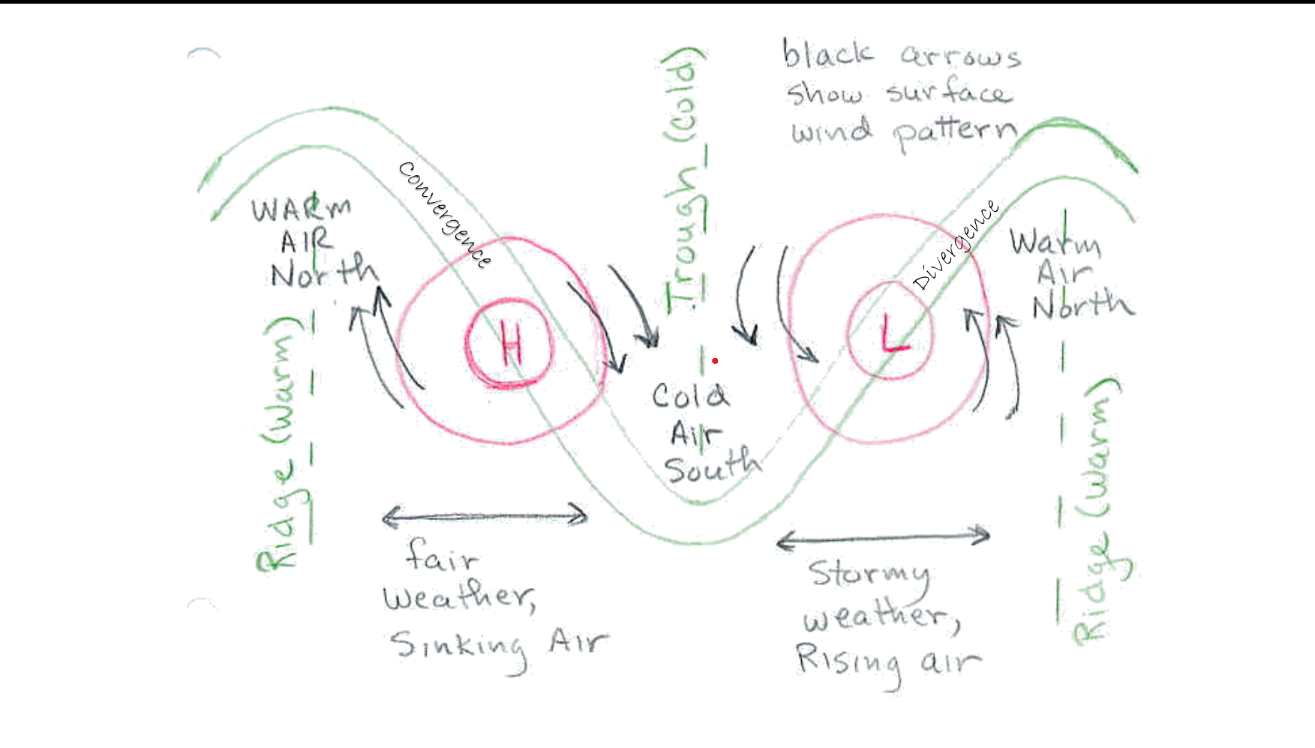 black arrows
show surface
wind pattern
Trough (cold)
Convergence
WARM
AIR
North
Ridge (Warm)
H
Cold
Air
South
L
Divergence
Warm
Air
North
Ridge (Warm)
fair
weather,
Sinking Air
Stormy
weather,
Rising air